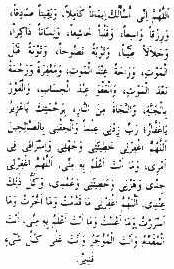 اللَّهُمَّ إِنِّي أَسْأَلُكَ إِيمَانًا كَامِلاً، وَيَقِينًا صَادِقًا،
وَرِزْقًا وَاسِعًا، وَقَلْبًا خَاشِعًا، وَلِسَانًا ذَاكِرًا،
وَحَلَالاً طَيِّبًا، وَتَوْبَةً نَصُوحًا، وَتَوْبَةً قَبْلَ
الْمَوْتِ، وَرَاحَةً عِنْدَ الْمَوْتِ، وَمَغْفِرَةً وَرَحْمَةً
بَعْدَ الْمَوْتِ، وَالْعَفْوَ عِنْدَ الْحِسَابِ، وَالْفَوْزَ
بِالْجَنَّةِ، وَالنَّجَاةَ مِنَ النَّارِ، بِرَحْمَتِكَ يَا عَزِيزُ
يَا غَفَّارُ، رَبِّ زِدْنِي عِلْمًا وَأَلْحِقْنِي بِالصَّالِحِينَ
اللَّهُمَّ اغْفِرْلِي خَطِيئَتِي وَجَهْلِي، وَإِسْرَافِي فِي
أَمْرِي، وَمَا أَنْتَ أَعْلَمُ بِهِ مِنِّي، اللَّهُمَّ اغْفِرْلِي
جِدِّي وَهَزْلِي وَخَطِيئَتِي وَعَمْدِي، وَكُلُّ ذٰلِكَ
عِنْدِي، اللَّهُمَّ اغْفِرْلِي مَا قَدَّمْتُ وَمَا أَخَّرْتُ وَمَا
أَسْرَرْتُ وَمَا أَعْلَنْتُ وَمَا أَنْتَ أَعْلَمُ بِهِ مِنِّي، أَنْتَ
الْمُقَدِّمُ وَأَنْتَ الْمُؤَخِّرُ وَأَنْتَ عَلَى كُلِّ شَيْءٍ
قَدِيرٌ.